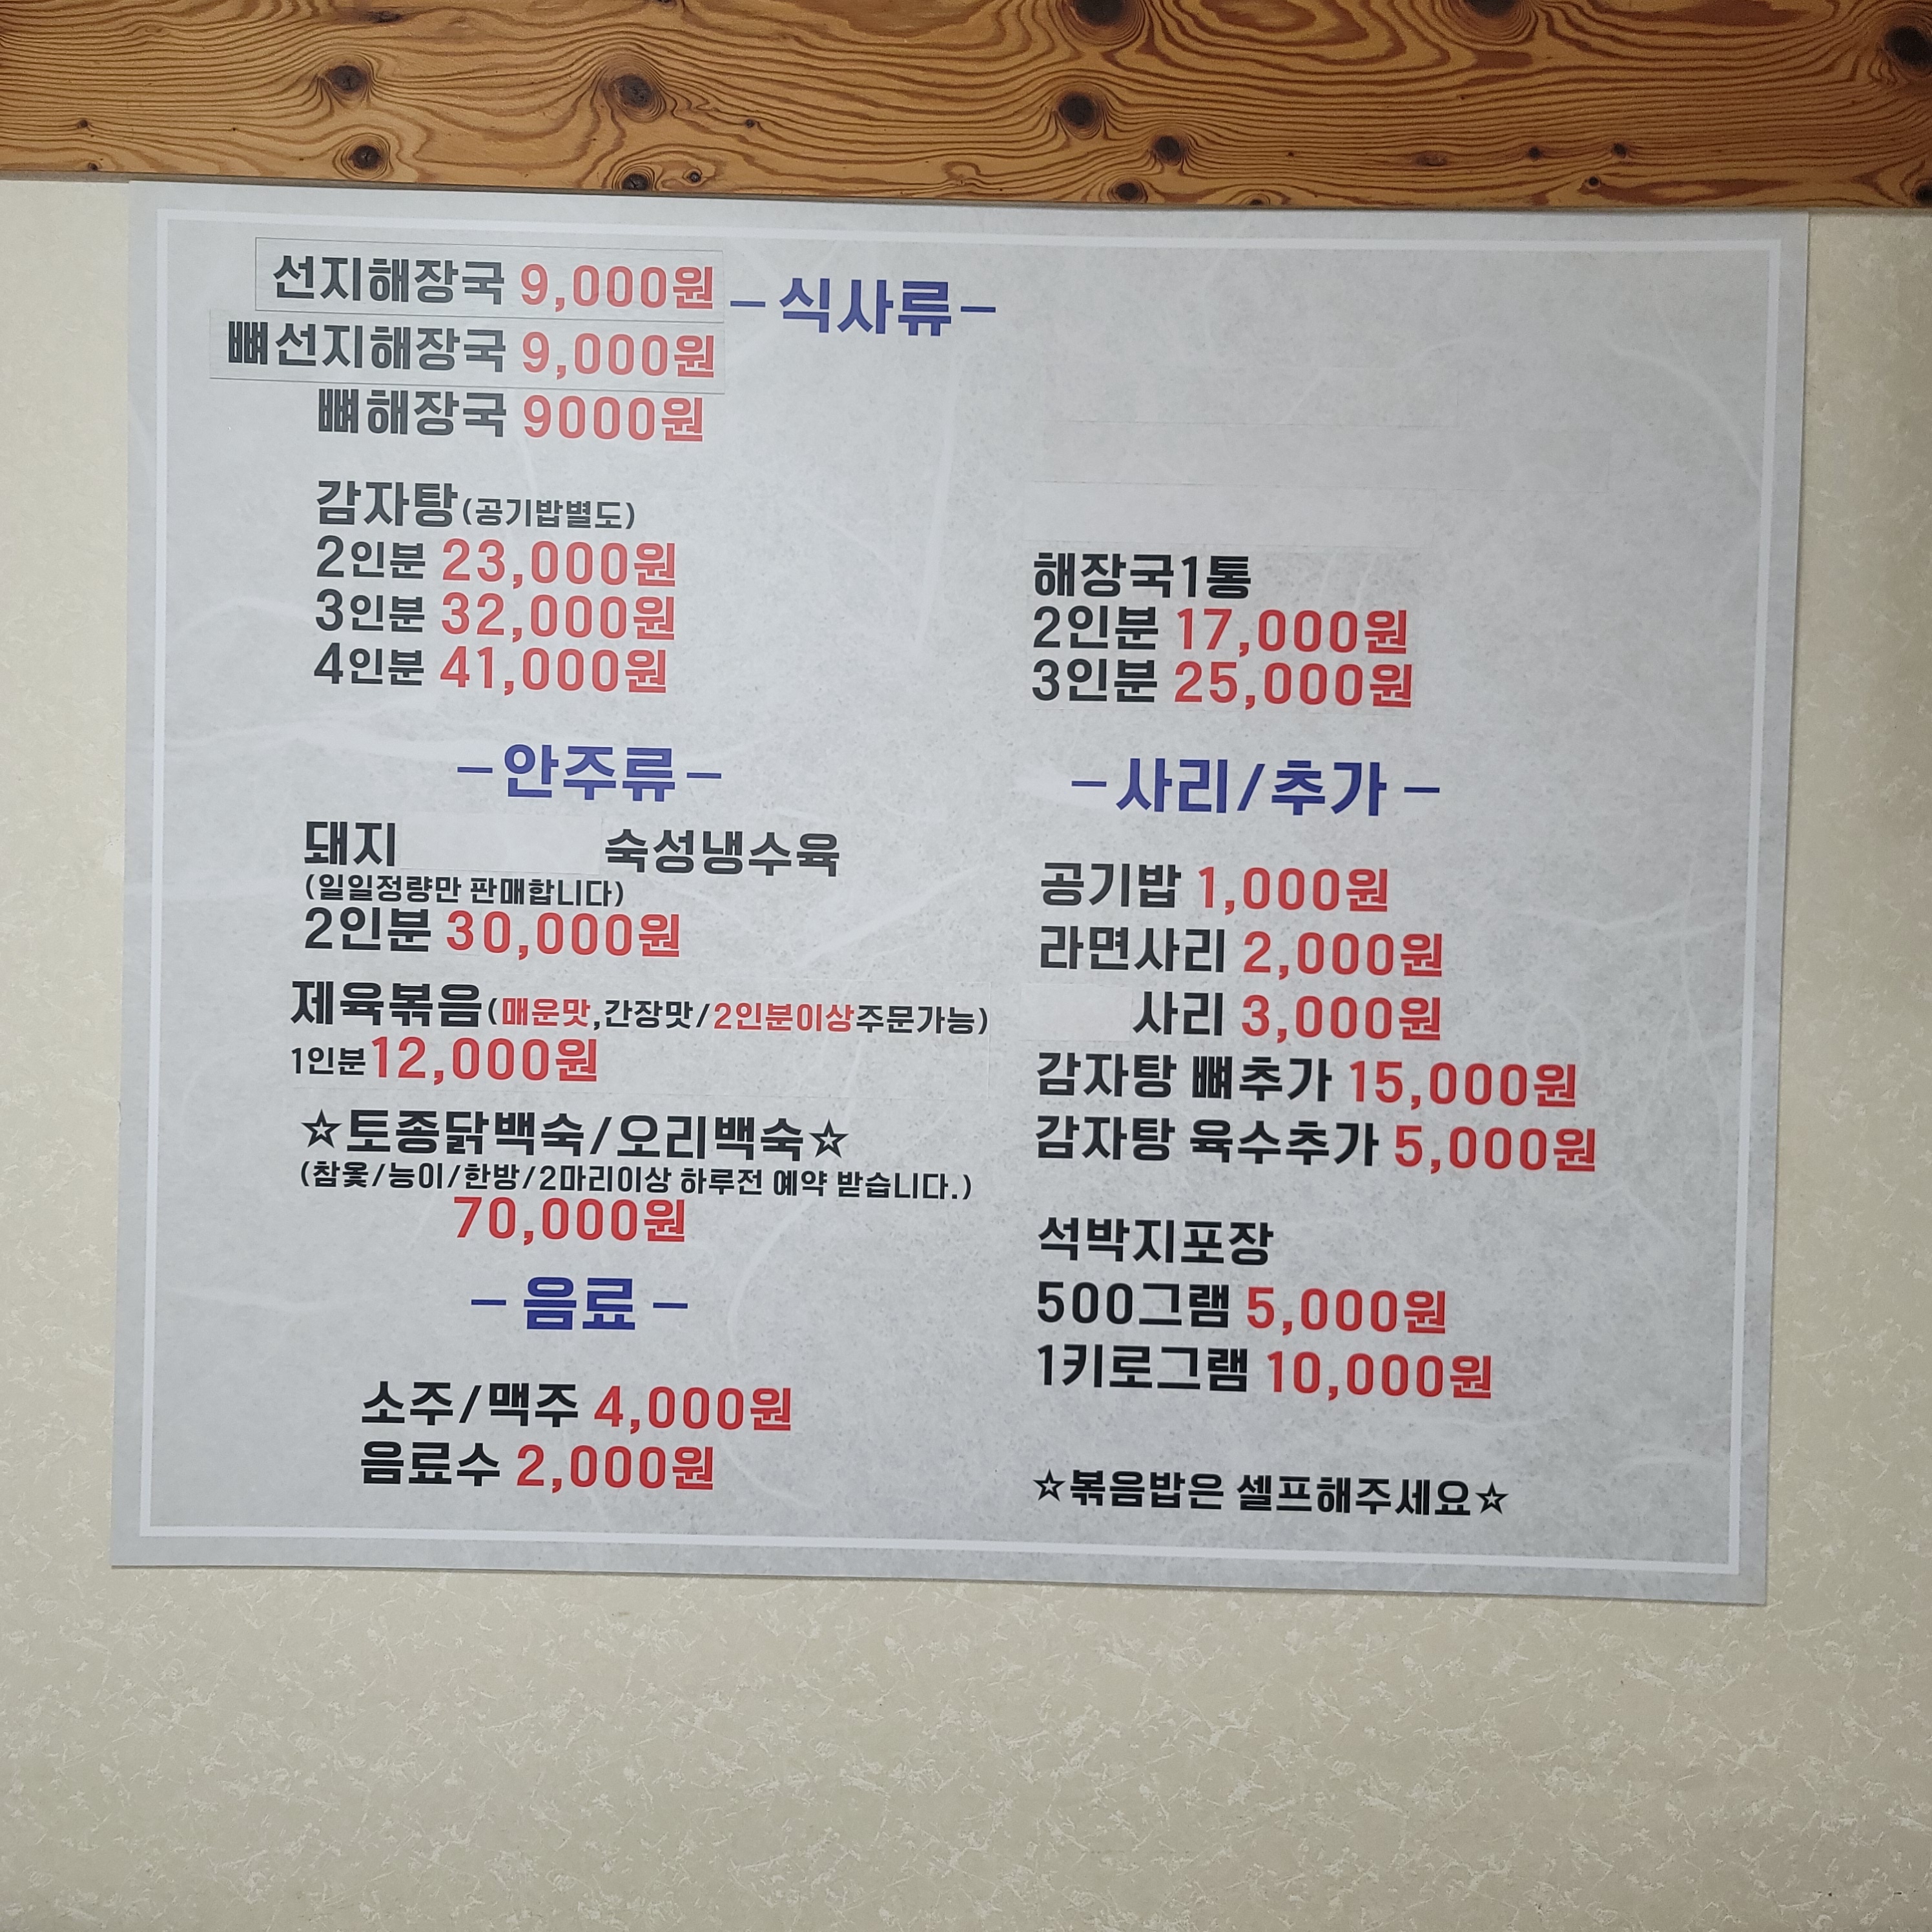 선지해장국 9,000원
-식사류-
뼈선지해장국 9,000원
뼈해장국 9000원
감자탕(공기밥별도)
2인분 23,000원
3인분 32,000원
4인분 41,000원
해장국1통
2인분 17,000원
3인분 25,000원
-안주류-
돼지 숙성냉수육
(일일정량만 판매합니다)
2인분 30,000원
제육볶음(매운맛,간장맛/2인분이상주문가능)
1인분12,000원
☆토종닭백숙/오리백숙☆
(참옻/능이/한방/2마리이상 하루전 예약 받습니다.)
70,000원
-음료-
소주/맥주 4,000원
음료수 2,000원
-사리/추가-
공기밥 1,000원
라면사리 2,000원
사리 3,000원
감자탕 뼈추가 15,000원
감자탕 육수추가 5,000원
석박지포장
500그램 5,000원
1키로그램 10,000원
☆볶음밥은 셀프해주세요☆